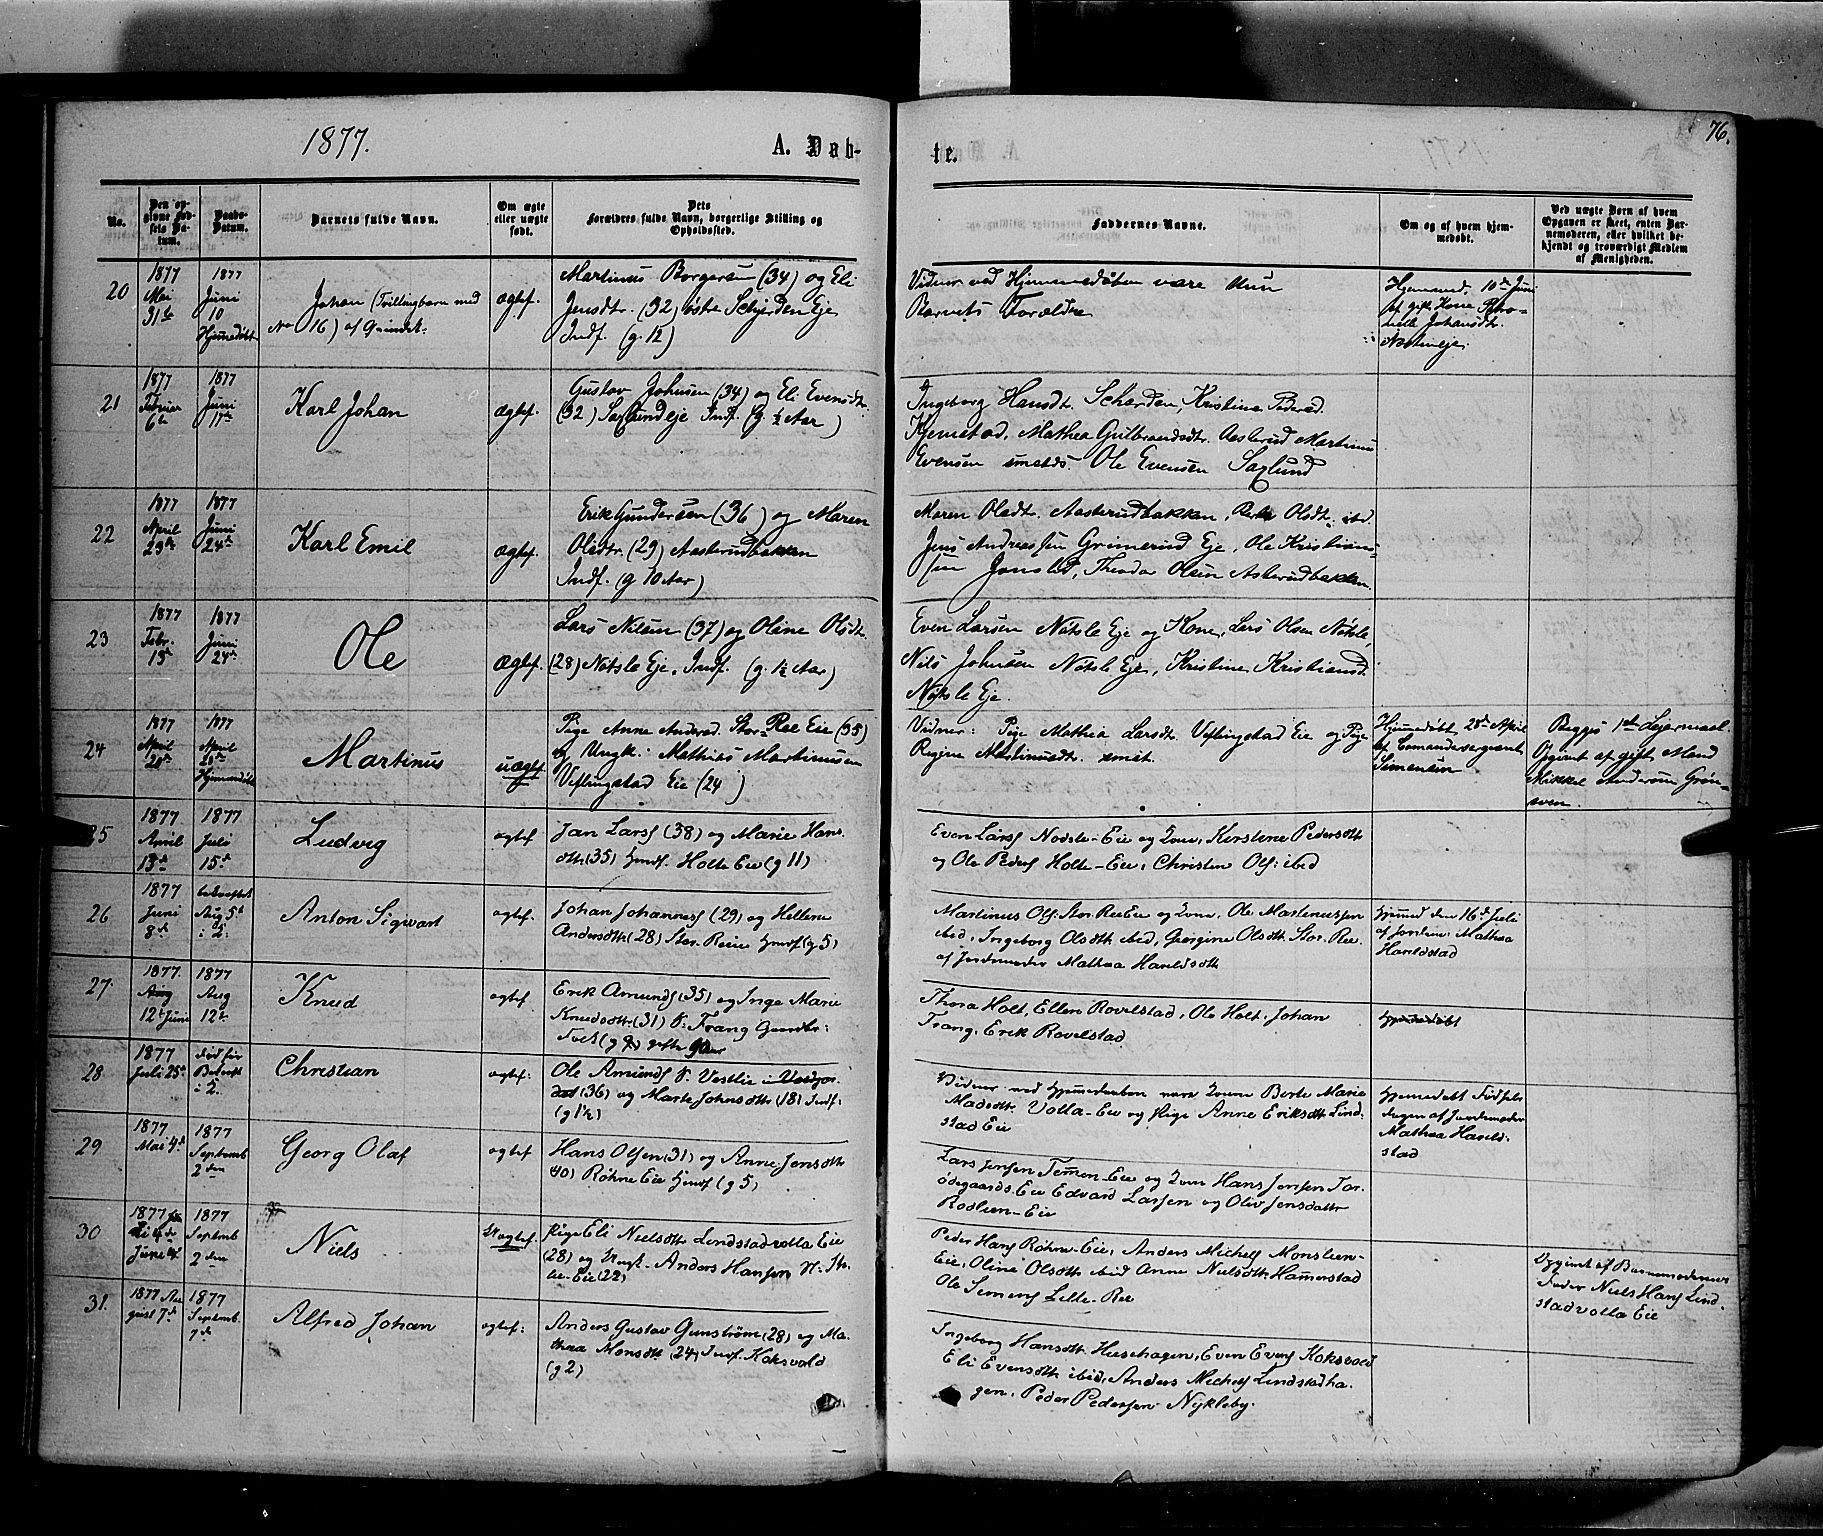 1877.
A. Dåb-
te.
76.
No.
Den op-
givne Fød-
sels Da-
tum.
Daabs-
Datum.
Barnets fulde Navn.
Om ægte
eller uægte
født.
Dets
Forældres fulde Navn, borgerlige Stilling og
Opholdssted.
Faddernes Navne.
Om og af hvem hjem-
medøbt.
Ved uægte Børn af hvem
Opgaven er skeet, enten Bar-
nemoderen, eller hvilket be-
kjendt og troværdigt Medlem
af Menigheden.
20
1877
Mai
31te
1877
Juni
10
Hjemmedøbt
Johan (Tvillingbarn med
No 16) af Grindet.
ægtef.
Martinus Borgersen (34) og Eli
Jensdt. (32) østre Schjerden Eje
Indf. (g. 12)
Vidner ved Hjemmedåben vare kun
Barnets Forældre
Hjemmed. 10de Juni
af gift Kone
Johansdt.
21
1877
Februar
6te
1877
Juni
17de
Karl Johan
ægtef.
Gustav Johnsen (34) og Eli Evensdt.
(32) Saglundeje Indf. (g. ½ Aar)
Ingeborg Hansdt. Schærden, Kristine Pedersd.
Kjemstad, Mathea Gulbrandsdt. Aasterud Martinus
Evensen smsteds. Ole Evensen Saglund
22
1877
April
29de
1877
Juni
24de
Karl Emil
ægtef.
Erik Gundersen (36) og Maren
Olsdtr. (29) Aasterudbakken
Indf. (g 10 Aar)
Maren Olsdtr. Aasterudbakken, Olsdtr. ibd.
Jens Andreassen Grimerud Eje, Ole Kristians-
sen Theodor Olsen Aasterudbakken
23
1877
Febr.
15de
1877
Juni
24de
Ole
ægtef.
Lars Nilsen (37) og Oline Olsdt.
(28) Nøtsle Eje. Indf. (g. 1½ Aar)
Even Larsen Nøtsle Eje og Kone, Lars Olsen Nøtsle,
Nils Johnsen Nøtsle Eje, Kristine Kristiansd.
Nøtsle Eje.
24
1877
April
28de
1877
April
28de
Hjemmedøbt
Martinus
uægtef
Pige Anne Andersd. Stor-Ree Eie (35)
og Ungk. Mathias Martinusen
Veflingstad Eie (24)
Vidner: Pige Mathea Larsdt. Veflingstad Eie og Pige
Regine Martinusdt. smst.
Hjemmedøbt 28de April
af Comandersergeant
Simensen
Begges 1ste Leiermaal
Opgivet af gift Mand
Mikkel Andersen Grøn-
sven
25
1877
April
13de
1877
Juli
15d
Ludvig
ægtef
Jan Larss (38) og Marie Hans
dtt (35) Indf. Holte Eie (g 11)
Even Larss Nødsle-Eie og Kone, Kirstine Pedersdtt
og Ole Peders Holte-Eie, Christen Ols: ibid
26
1877
Juni
8d
bekræftet
Aug 5d
i K.
Anton Sigwart
ægtef.
Johan Johanness (29) og Hellene
Andersdtt (28) Stor-Reeie Indf (g 5)
Martinus Ols: Stor-Ree Eie og Kone, Ole Martinussen
ibid, Ingeborg Olsdtt ibid, Georgine Olsdtt Stor-Ree.
af Jordemoder Mathea Haraldsdtt
Hjemmd den 16d Juli
af Jordem: Mathea
Haraldstad
27
1877.
Aug
12t Juni
1877
Aug
12t
Knud
ægtef
Erik Amunds (35) og Inge Marie
Knudsdtt (31) S: Trang Gundbr:
(g 9) gifte 9 Aar
Thora Holt, Ellen Rovelstad, Ole Holt, Johan
Trang, Erik Rovelstad
Hjemmedøbt
28
1877
Juli 25d
død før
Bekræft
i K.
Christian
ægtef:
Ole Amunds S. Vestlie i
(36) og Marte Johnsdtt (18) Indf:
(g ½)
Vidner ved Hjemmedaaben vare Kone Berte Marie
Madsdtt Volla-Eie og Pige Anne Eriksdtt Lind-
stad Eie
Hjemmedøbt Fødsels
dagen af Jordemoder
Mathea Harald-
stad
29
1877
Mai 4d
1877
Septemb
2den
Georg Olaf
ægtef
Hans Olsen (31) og Anne Jensdtt
40) Røhne Eie Indf (g 5)
Lars Jensen Temmen-Eie og Kone Hans Jensen Tor-
ødegaards Eie Edvard Larsen og Oliv Jensdatter
Rodlien-Eie
30
1877
4de
Juni 4.
1877
Septemb
2den
Niels
Uægtef
Pige Eli Nielsdtt Lindstadvolla Eie
(28) og Ungk. Anders Hansen N:
Eie (22)
Peder Hans Røhne-Eie, Anders Michels Monslien-
Eie, Oline Olsdtt ibid Anne Nielsdtt Hamerstad
Ole Simens Lille-Ree
Opgivet af Barnemoderens
Fader Niels Hans Lind-
stadvolla Eie
31.
1877 Au
gust 7d
1877
Septemb
9de
Alfred Johan
ægtef:
Anders Gustav Gunstrøm (28) og Ma-
thea Monsdtt (24) Indf. Koksvold
(g 2)
Ingeborg Hansdtt Huschagen, Even Evens Koksvold
Eli Evensdtt ibid, Anders Michels Lindstadha-
gen, Peder Pedersen Nykleby.